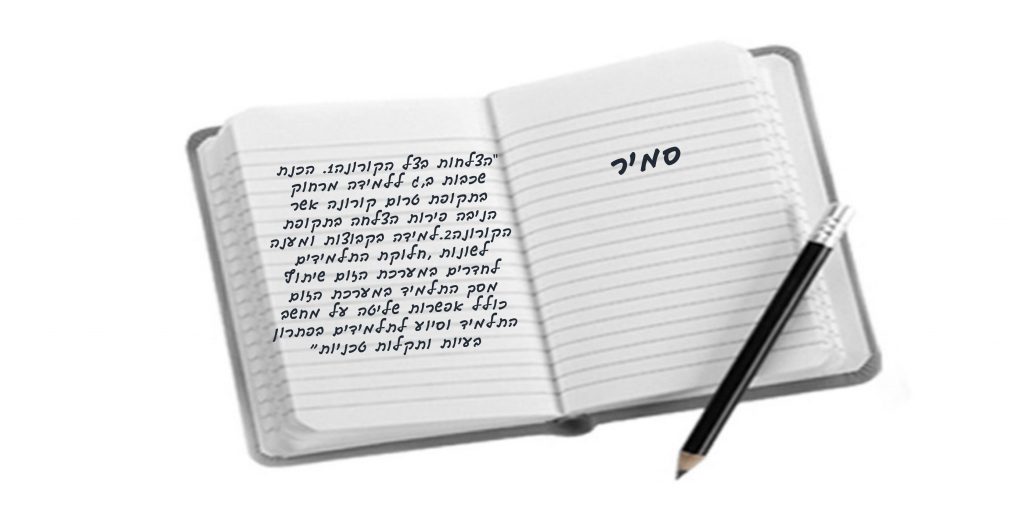 סמיר
"הצלחות בצל הקורונה1. הכנת
שכבות ב,ג ללמידה מרחוק
בתקופת טרום קורונה אשר
הניבה פירות הצלחה בתקופת
הקורונה2.למידה בקבוצות ומענה
לשונות ,חלוקת התלמידים
לחדרים במערכת הזום שיתוף
מסך התלמיד במערכת הזום
כולל אפשרות שליטה על מחשב
התלמיד וסיוע לתלמידים בפתרון
בעיות ותקלות טכניות"